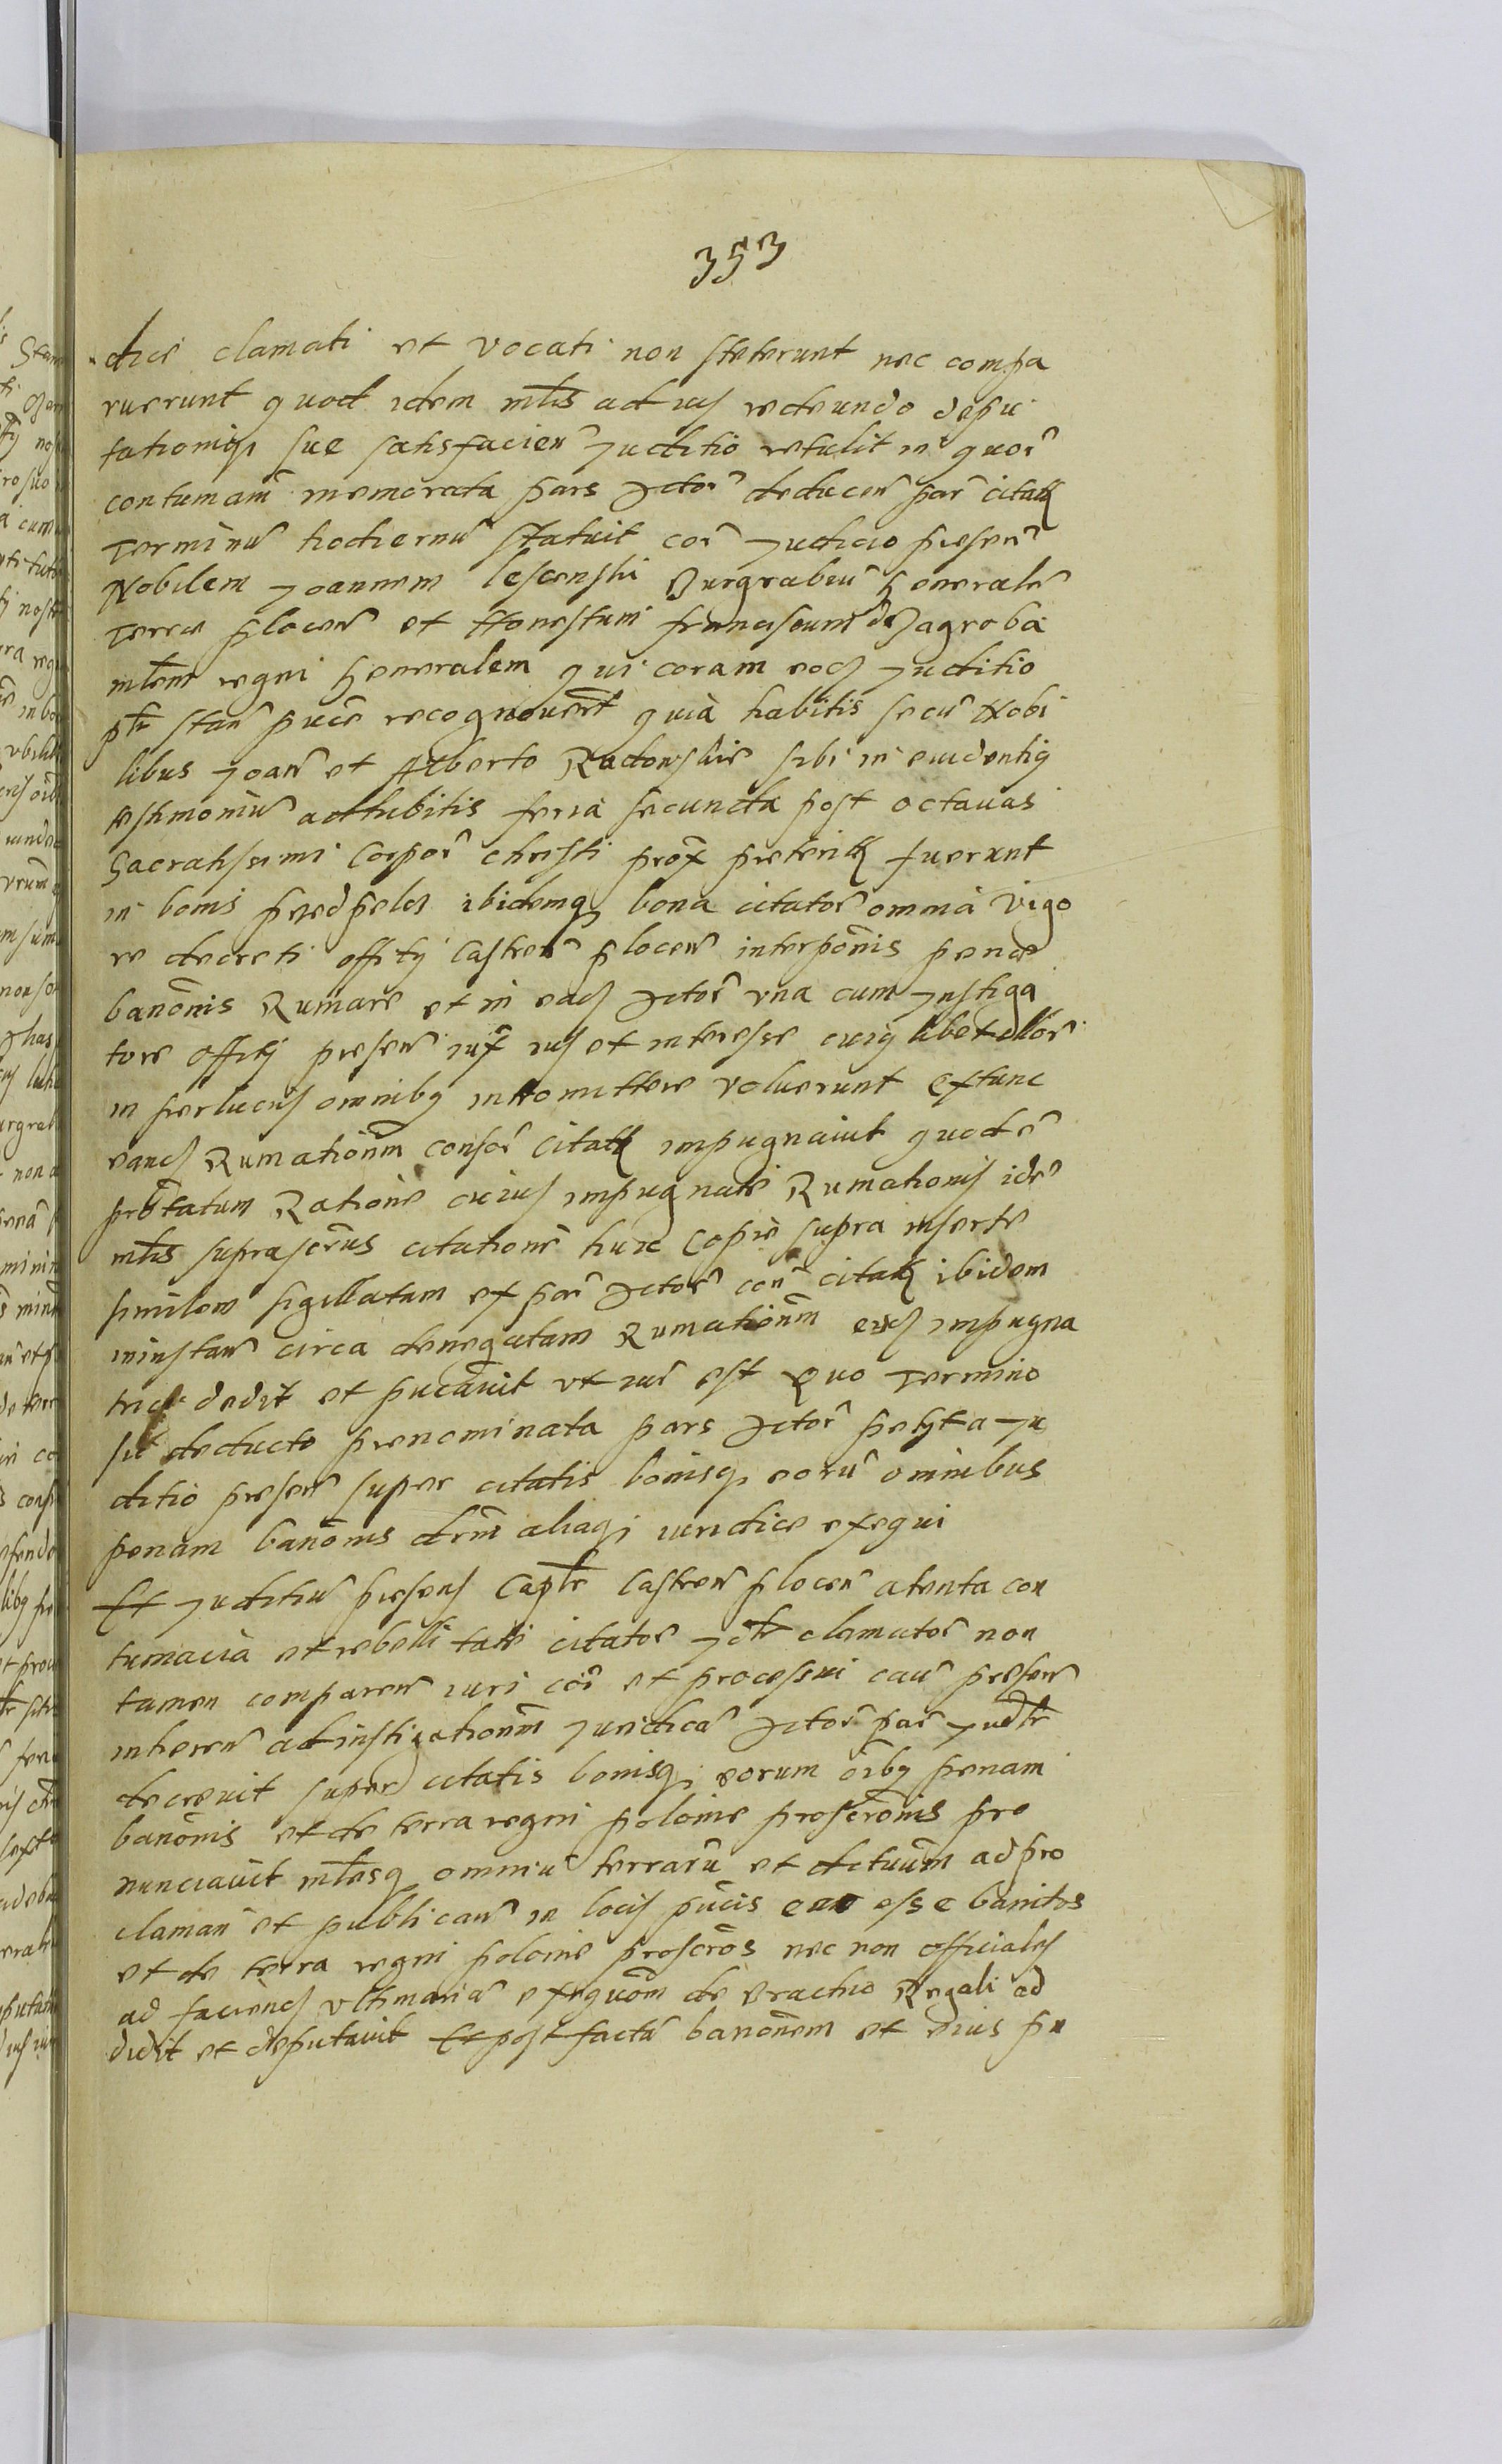 353
dicē clamati et vocati non steterunt nec compa
ruerunt quod idem mltis ad ius redeundo depu
tationiq sue satisfacien Juditio retulit in quor
contumam memorata pars Actor deducen par citat
Terminū hodiernū statuit cor Judicio presen
Nobilem Joannem lescenski Burgrabiū Generalē
Terre plocen et Honestum franciscum de Zagroba
mltem regni Generalem qui coram eod Juditio
plr stan puce recognouert quia habitis secū Nobi
libus Joan et Alberto Radonskie sibi in euidentig
testimoniū adhibitis feria secunda post octauas
Sacratissimi Corpor christi prox preterit fuerunt
in bonis ibidemq bona citator omnia vigo
re decreti offitij Castren plocen interponis pene
banonis Rumare et in ead Actor vna cum Instiga
tore offitij presen iux ius et interesse cuiq libet
in omnibq intromittere voluerunt extunc
eand Rumationm consor citat impugnauit quod ē
prbtatum Ratione cuius impugnate Rumationis idē
mltis suprascrus citationē huic Copie supra inserte
similem sigillatam ex par Actor con citat ibidem
ininstan circa denegatam Rumationm eius impugna
trici dedit et pucauit vt iur est Quo Termino
sic deducto prenominata pars Actor petijt a Ju
ditio presen super citatis bonisq eorū omnibus
penam banonis drm aliaq iuridice exequi
Et Juditiū presens Caplr Castren plocen atenta con
tumacia et rebelli tate citator Jdtr clamator non
tamen comparen iuri coi et processui cau presen
inheren ad instigationm Juridicā Actor par Judtr
decreuit super citatis bonisq eorum oibq penam
banonis et de terra regni polonie proscronis pro
nunciauit mltesq omniū terrarū et dictuum ad pro
claman et publican in locis pucis eos esse banitos
et de terra regni polonie proscros nec non officiales
ad faciend vltimariā exequom de brachio Regali ad
didit et deputauit Et post factā banonem et eius pu